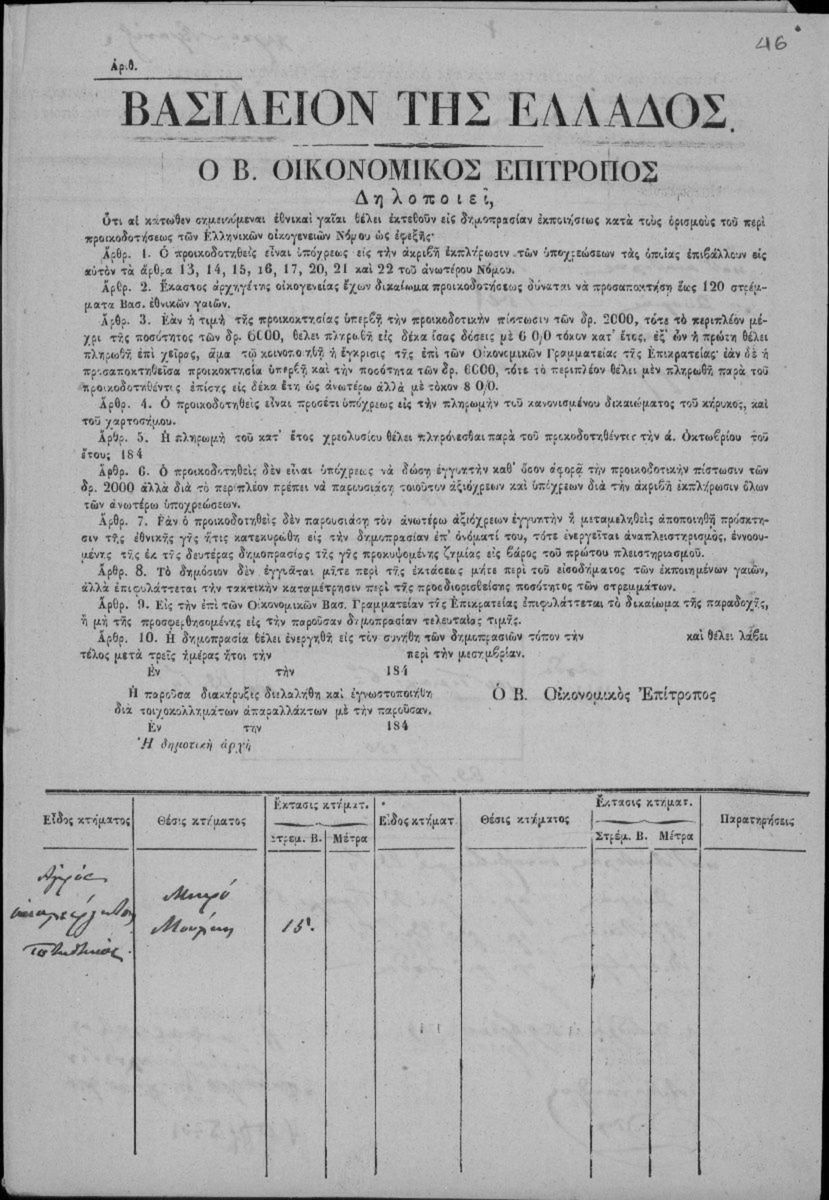 46
Ἀριθ.
ΒΑΣΙΛΕΙΟΝ ΤΗΣ ΕΛΛΑΔΟΣ.
Ο Β. ΟΙΚΟΝΟΜΙΚΟΣ ΕΠΙΤΡΟΠΟΣ
Δηλοποιεῖ,
Ὅτι αἱ κάτωθεν σημειούμεναι ἐθνικαὶ γαῖαι θέλει ἐκτεθοῦν εἰς δημοπρασίαν ἐκποιήσεως κατὰ τοὺς ὁρισμοὺς τοῦ περὶ
προικοδοτήσεως τῶν Ἑλληνικῶν οἰκογενειῶν Νόμου ὡς ἐφεξῆς·
Ἄρθρ. 1. Ὁ προικοδοτηθεὶς εἶναι ὑπόχρεως εἰς τὴν ἀκριβῆ ἐκπλήρωσιν τῶν ὑποχρεώσεων τὰς ὁποίας ἐπιβάλλουν εἰς
αὐτὸν τὰ ἄρθρα 13, 14, 15, 16, 17, 20, 21 καὶ 22 τοῦ ἀνωτέρου Νόμου.
Ἄρθρ. 2. Ἕκαστος ἀρχηγέτης οἰκογενείας ἔχων δικαίωμα προικοδοτήσεως δύναται νὰ προσαποκτήσῃ ἕως 120 στρέμ-
ματα Βασ. ἐθνικῶν γαιῶν.
Ἄρθρ. 3. Ἐὰν ἡ τιμὴ τῆς προικοκτησίας ὑπερβῇ τὴν προικοδοτικὴν πίστωσιν τῶν δρ. 2000, τότε τὸ περιπλέον μέ-
χρι τῆς ποσότητος τῶν δρ. 6000, θέλει πληρωθῆ εἰς δέκα ἴσας δόσεις μὲ 6 0/0 τόκον κατ' ἔτος, ἐξ' ὧν ἡ πρώτη θέλει
πληρωθῆ ἐπὶ χεῖρος, ἅμα τῷ κοινοποιηθῇ ἡ ἔγκρισις τῆς ἐπὶ τῶν Οἰκονομικῶν Γραμματείας τῆς Ἐπικρατείας· ἐὰν δὲ ἡ
προσαποκτηθεῖσα προικοκτησία ὑπερβῇ καὶ τὴν ποσότητα τῶν δρ. 6000, τότε τὸ περιπλέον θέλει μὲν πληρωθῆ παρὰ τοῦ
προικοδοτηθέντος ἐπίσης εἰς δέκα ἔτη ὡς ἀνωτέρω ἀλλὰ μὲ τόκον 8 0/0.
Ἄρθρ. 4. Ὁ προικοδοτηθεὶς εἶναι προσέτι ὑπόχρεως εἰς τὴν πληρωμὴν τοῦ κανονισμένου δικαιώματος τοῦ κήρυκος, καὶ
τοῦ χαρτοσήμου.
Ἄρθρ. 5. Ἡ πληρωμὴ τοῦ κατ' ἔτος χρεολυσίου θέλει πληρόνεσθαι παρὰ τοῦ προικοδοτηθέντος τὴν ά. Ὀκτωβρίου τοῦ
ἔτους 184
Ἄρθρ. 6. Ὁ προικοδοτηθεὶς δὲν εἶναι ὑπόχρεως νὰ δώσῃ ἐγγυητὴν καθ' ὅσον ἀφορᾷ τὴν προικοδοτικὴν πίστωσιν τῶν
δρ. 2000 ἀλλὰ διὰ τὸ περιπλέον πρέπει νὰ παρουσιάσῃ τοιοῦτον ἀξιόχρεων καὶ ὑπόχρεων διὰ τὴν ἀκριβῆ ἐκπλήρωσιν ὅλων
τῶν ἀνωτέρω ὑποχρεώσεων.
Ἄρθρ. 7. Ἐὰν ὁ προικοδοτηθεὶς δὲν παρουσιάσῃ τὸν ἀνωτέρω ἀξιόχρεων ἐγγυητὴν ἢ μεταμεληθεὶς ἀποποιηθῇ πρόσκτη-
σιν τῆς ἐθνικῆς γῆς ἥτις κατεκυρώθη εἰς τὴν δημοπρασίαν ἐπ' ὀνόματί του, τότε ἐνεργεῖται ἀναπλειστηρισμὸς, ἐννοου-
μένης τῆς ἐκ τῆς δευτέρας δημοπρασίας τῆς γῆς προκυψομένης ζημίας εἰς βάρος τοῦ πρώτου πλειστηριασμοῦ.
Ἄρθρ. 8. Τὸ δημόσιον δὲν ἐγγυᾶται μήτε περὶ τῆς ἐκτάσεως μήτε περὶ τοῦ εἰσοδήματος τῶν ἐκποιημένων γαιῶν,
ἀλλὰ ἐπιφυλάττεται τὴν τακτικὴν καταμέτρησιν περὶ τῆς προσδιορισθείσης ποσότητος τῶν στρεμμάτων.
Ἄρθρ. 9. Εἰς τὴν ἐπὶ τῶν Οἰκονομικῶν Βασ. Γραμματείαν τῆς Ἐπικρατείας ἐπιφυλάττεται τὸ δικαίωμα τῆς παραδοχῆς,
ἢ μὴ τῆς προσφερθησομένης εἰς τὴν παροῦσαν δημοπρασίαν τελευταίας τιμῆς.
Ἄρθρ. 10. Ἡ δημοπρασία θέλει ἐνεργηθῆ εἰς τὸν συνήθη τῶν δημοπρασιῶν τόπον τὴν καὶ θέλει λάβει
τέλος μετὰ τρεῖς ἡμέρας ἤτοι τὴν περὶ τὴν μεσημβρίαν.
Ἐν τὴν 184
Ἡ παροῦσα διακήρυξις διελαλήθη καὶ ἐγνωστοποιήθη
διὰ τοιχοκολλημάτων ἀπαραλλάκτων μὲ τὴν παροῦσαν.
Ἐν την 184
Ἡ δημοτικὴ ἀρχὴ
Ὁ Β. Οἰκονομικὸς Ἐπίτροπος
Εἶδος κτήματος Θέσις κτήματος Ἔκτασις κτήματ. Εἶδος κτήματ Θέσις κτήματος Ἔκτασις κτήματ. Παρατηρήσεις
Στρεμ. Β. Μέτρα Στρέμ. Β. Μέτρα
Ἀγρός
Μικρό
15.